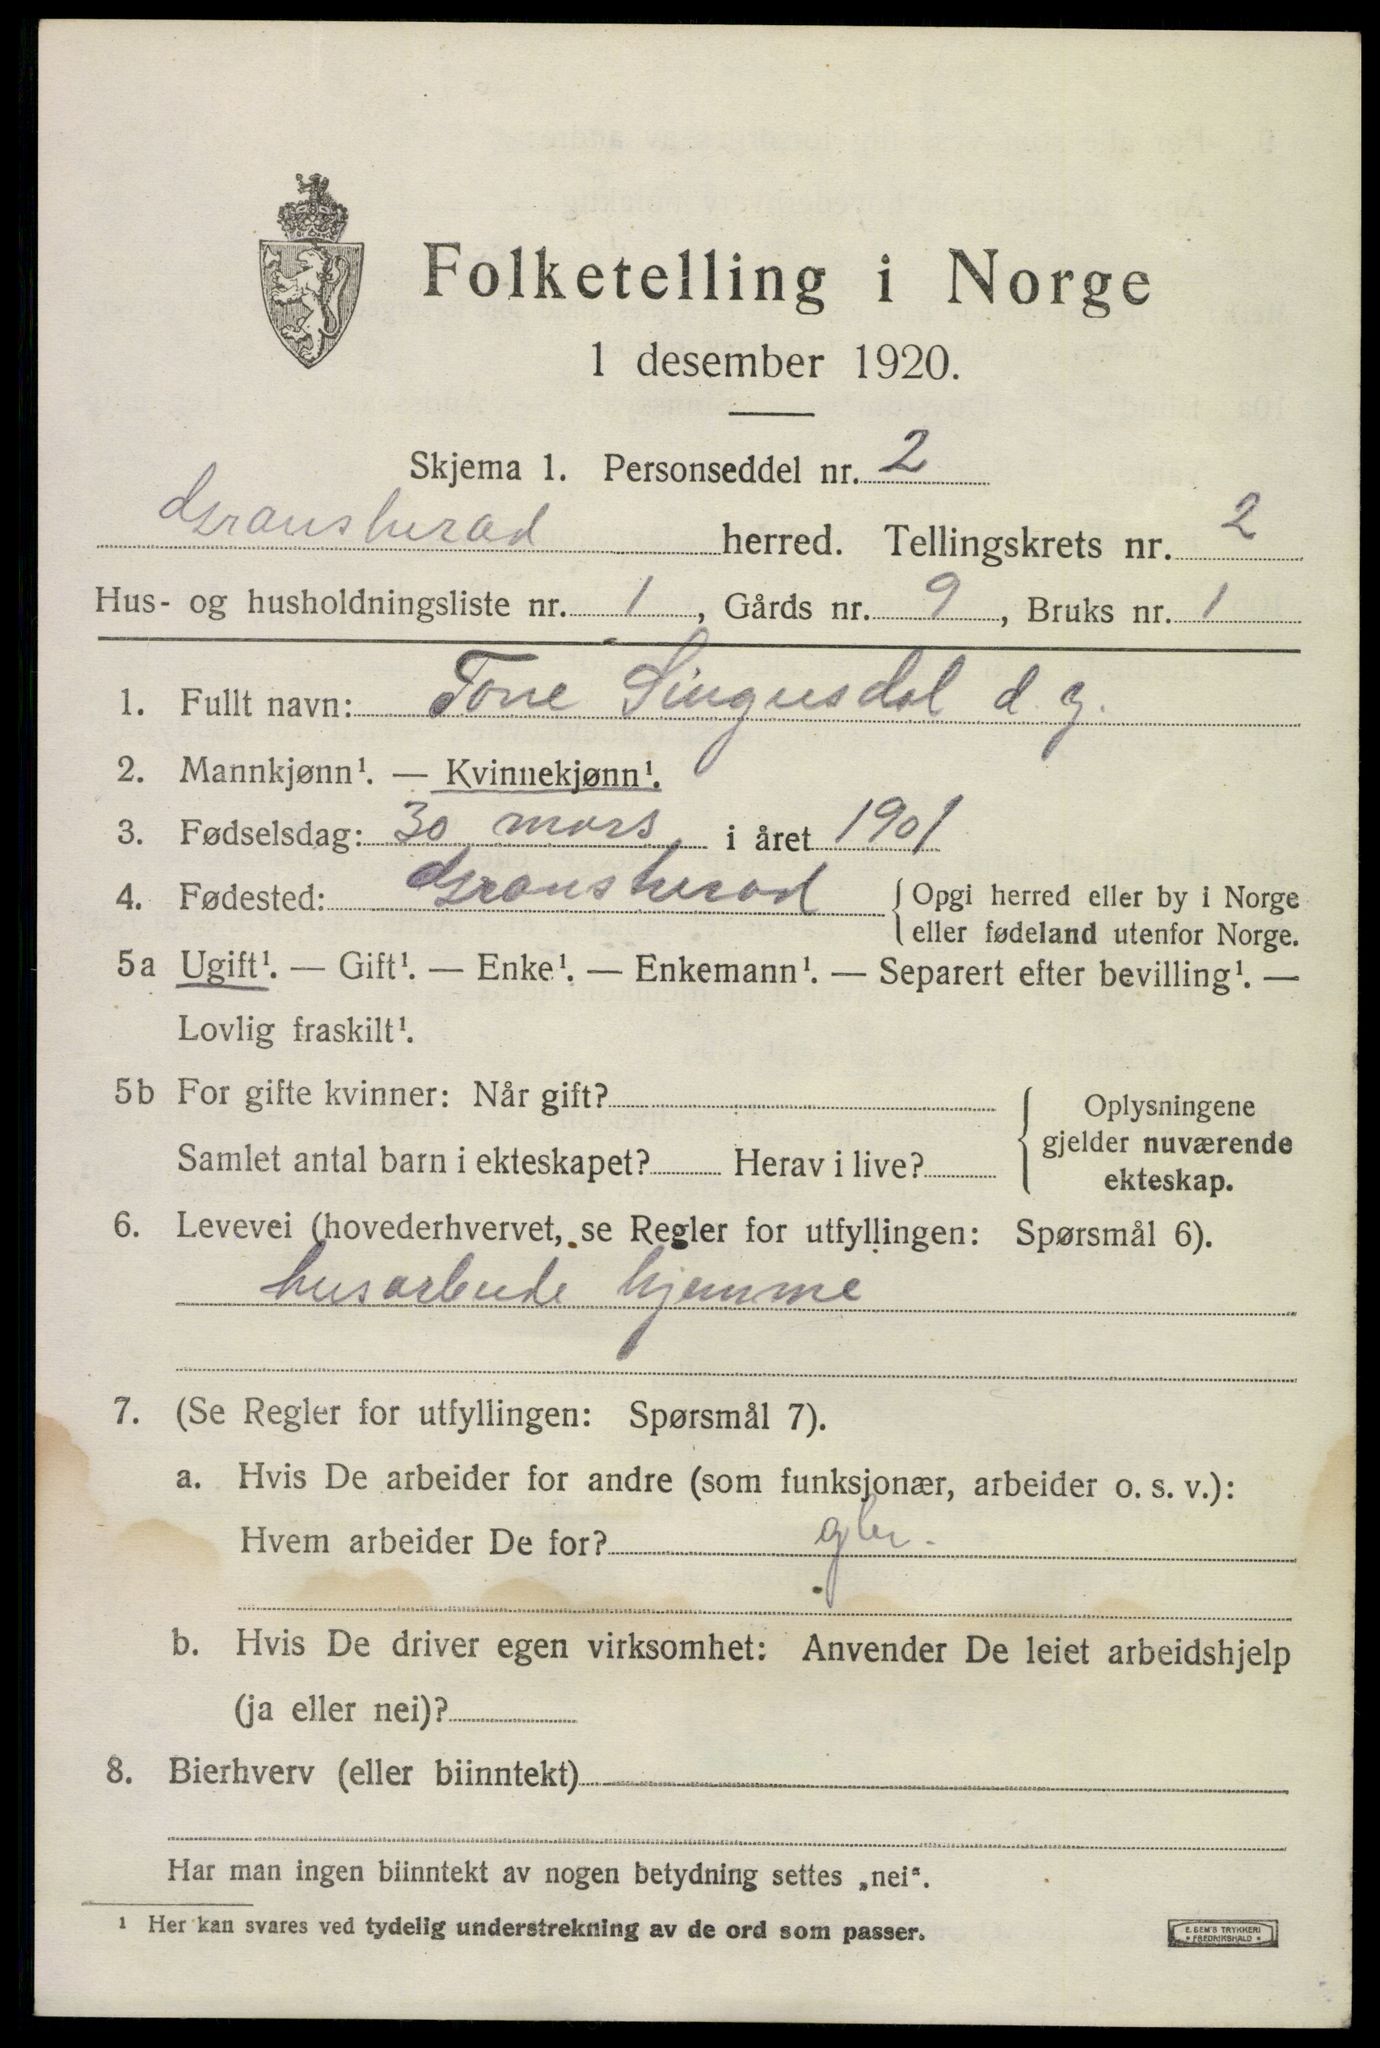 Folketelling i Norge
1 desember 1920.
Skjema 1. Personseddel nr. 2
Gransherad herred. Tellingskrets nr. 2
Hus- og husholdningsliste nr. 1, Gårds nr. 9, Bruks nr. 1
1. Fullt navn: Tone Singusdal d. y.
2. Mannkjønn¹. — Kvinnekjønn¹.
3. Fødselsdag: 30 mars i året 1901
4. Fødested: Gransherad { Opgi herred eller by i Norge
eller fødeland utenfor Norge.
5a Ugift¹. — Gift¹. — Enke¹. — Enkemann¹. — Separert efter bevilling¹. —
Lovlig fraskilt¹.
5b For gifte kvinner: Når gift?
Samlet antal barn i ekteskapet? Herav i live?
Oplysningene
gjelder nuværende
ekteskap.
6. Levevei (hovederhvervet, se Regler for utfyllingen: Spørsmål 6).
husarbeide hjemme
7. (Se Regler for utfyllingen: Spørsmål 7).
a. Hvis De arbeider for andre (som funksjonær, arbeider o. s. v.):
Hvem arbeider De for?
b. Hvis De driver egen virksomhet: Anvender De leiet arbeidshjelp
(ja eller nei)?
8. Bierhverv (eller biinntekt)
Har man ingen biinntekt av nogen betydning settes „nei".
¹ Her kan svares ved tydelig understrekning av de ord som passer.
E. SEM'S TRYKKERI
• FREDRIKSHALD •